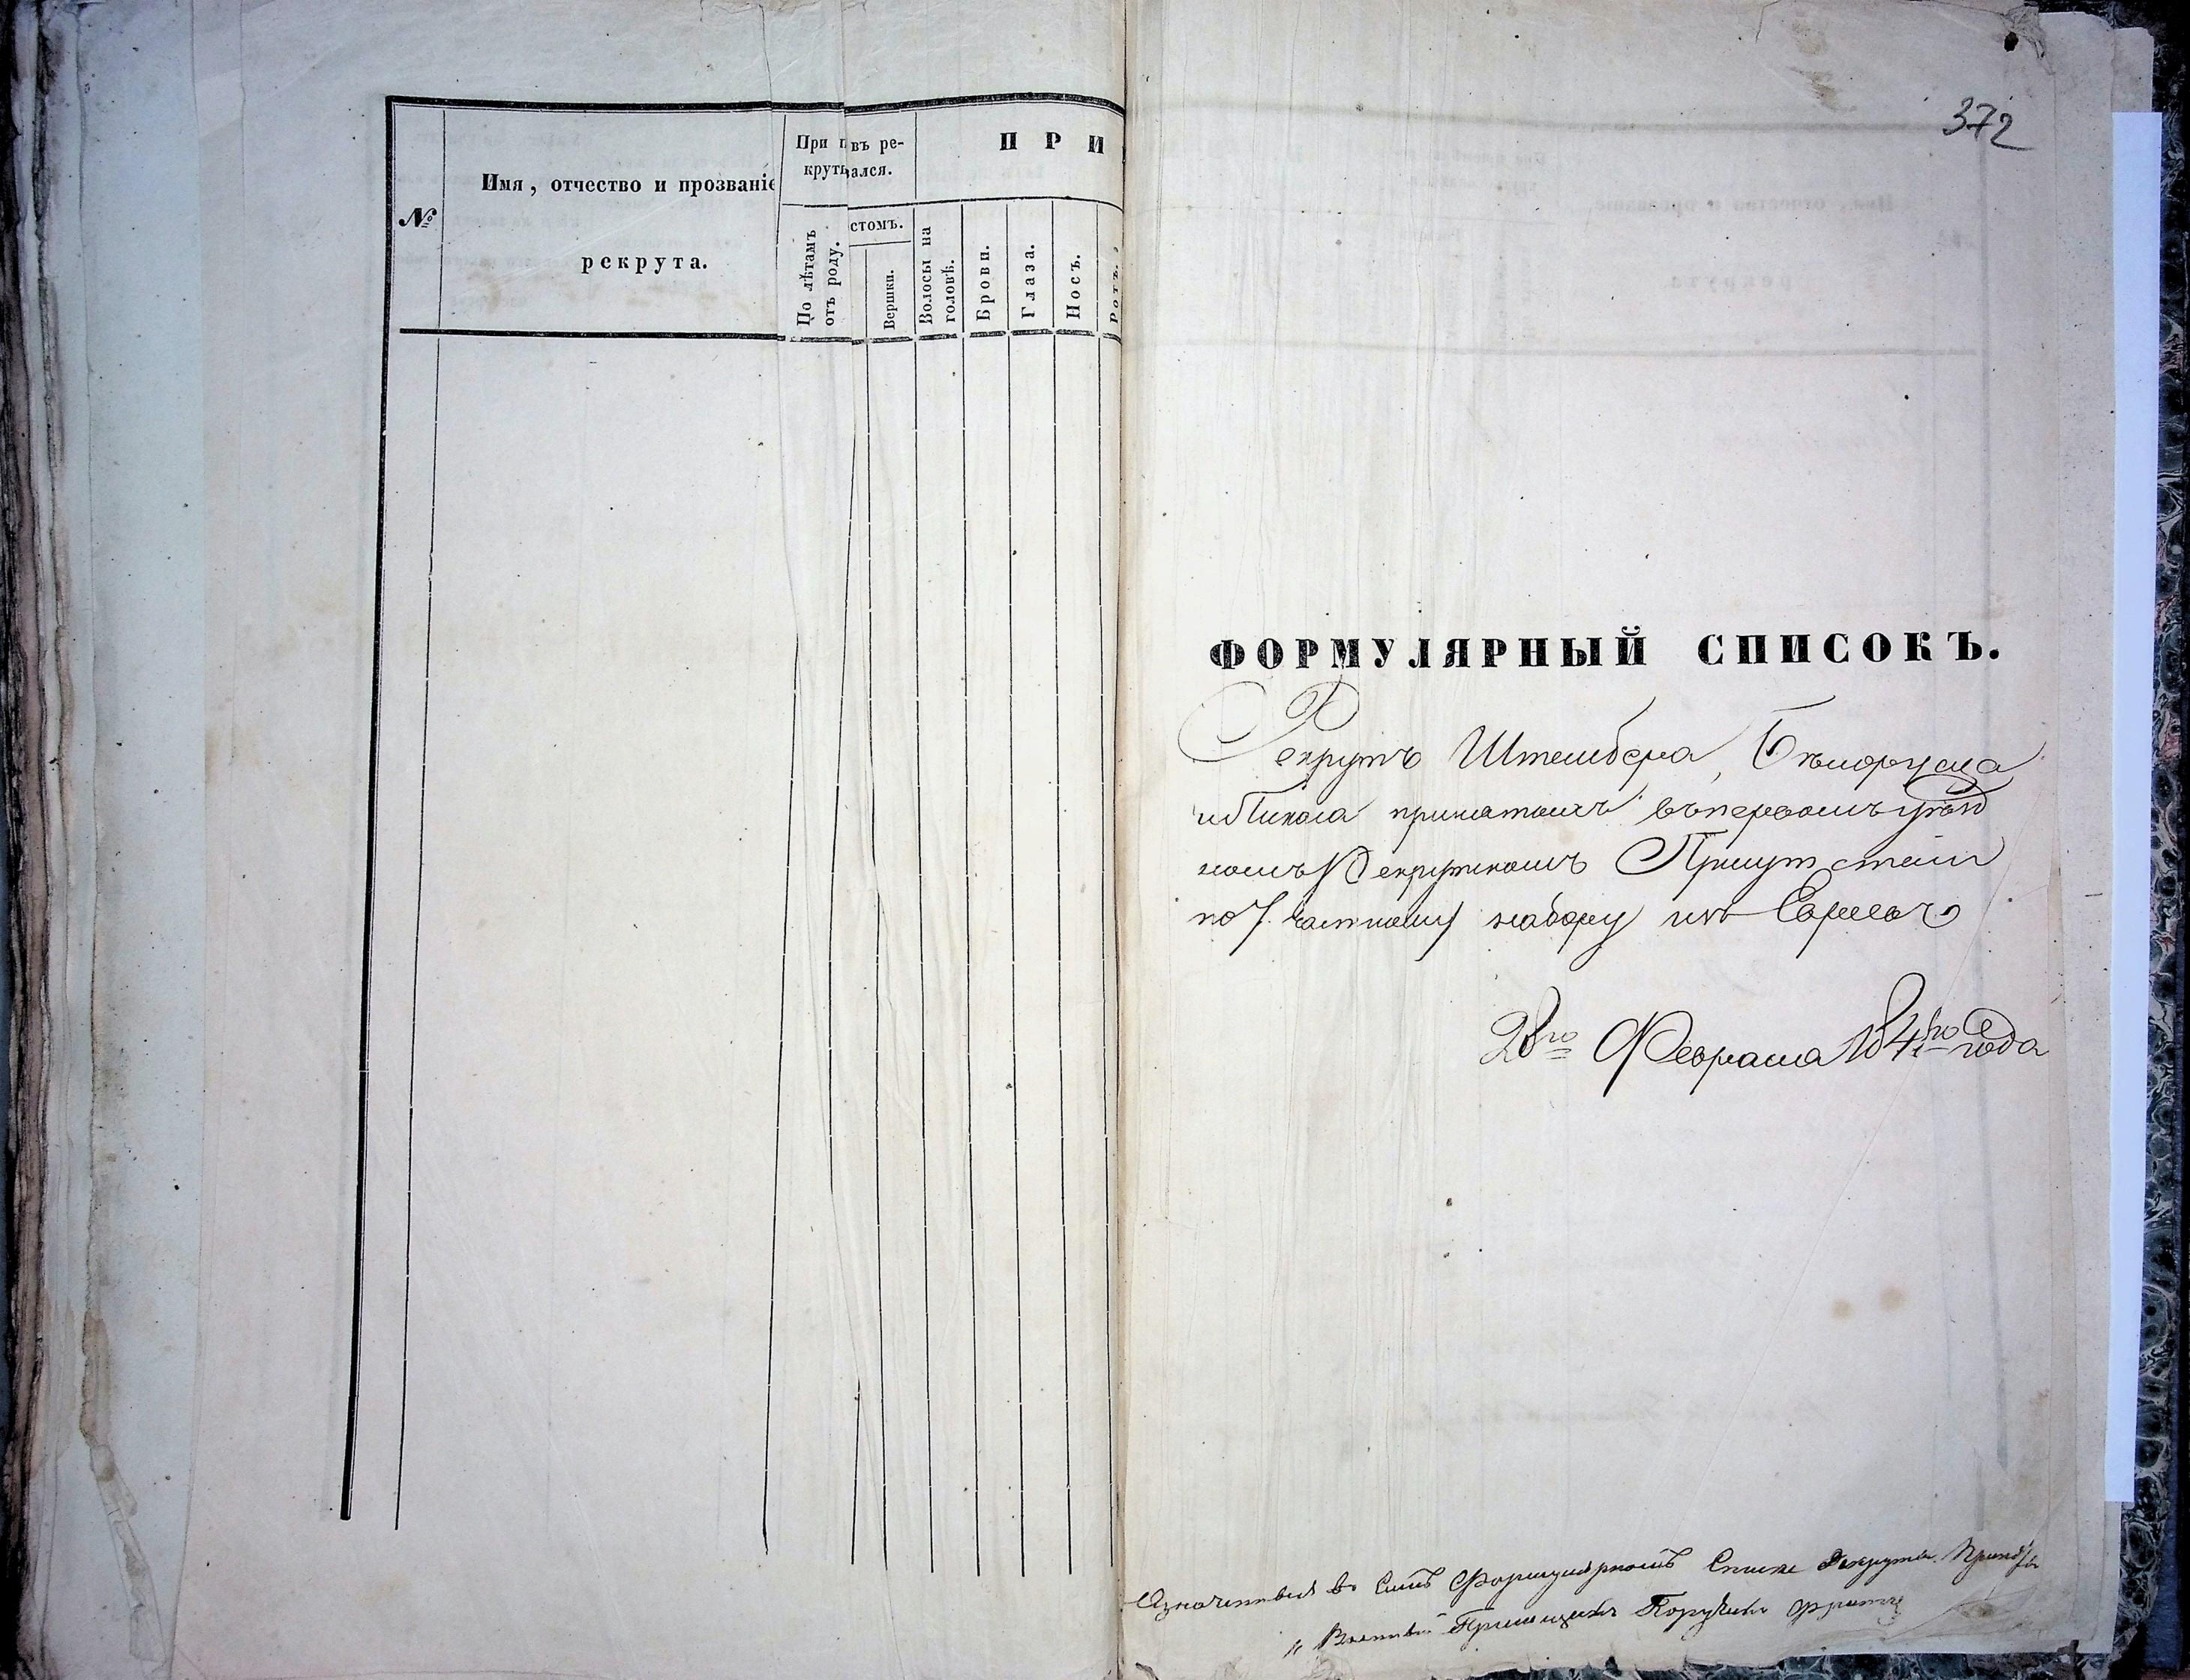 №
Имя, отчество и прозваніе
рекрута.
При п
въ ре-
крутъ
ался.
ПРИ
По лѣтамъ
отъ роду.
стомъ.
Вершки.
Волосы на
головѣ.
Брови.
Глаза.
Носъ.
Ротъ.
372
ФОРМУЛЯРНЫЙ СПИСОКЪ.
Рекрутъ Штемберга,
принятыхъ въ первомъ уѣзд
номъ Рекрутскомъ Присутствіи
по 7. частному набору изъ Евреевъ
Февраля года
въ Семъ Формулярномъ Списке Рекруты
Военный Пріемщикъ Поручикъ